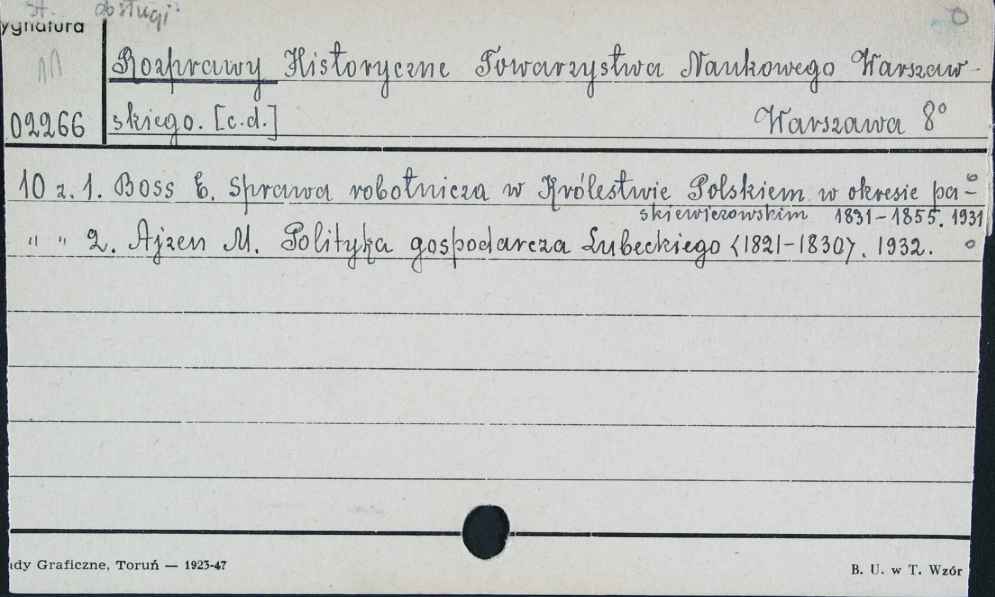 st. obsługi
ygnatura
02266
Rozprawy Historyczne Towarzystwa Naukowego Warszaw-
skiego. [c.d.] Warszawa 8°
10 z. 1. Boss E. Sprawa robotnicza w Królestwie Polskiem w okresie pa-
skiewiczowskim 1831-1855. 1931
" " 2. Ajzen M. Polityka gospodarcza Lubeckiego <1821-1830>. 1932.
ady Graficzne, Toruń — 1923-47
B. U. w T. Wzór